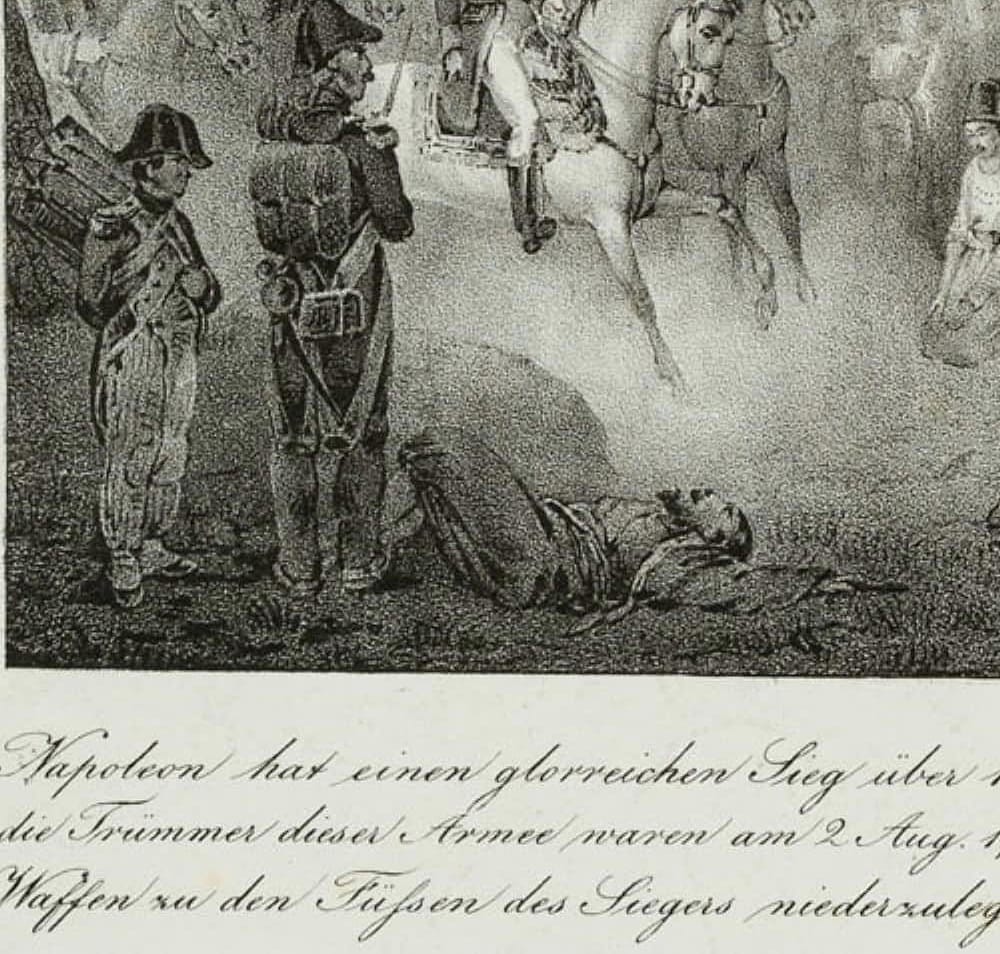 Napoleon hat einen glorreichen Sieg über
die Trümmer dieser Armee waren am 2 Aug.
Waffen zu den Füſsen des Siegers niederzuleg